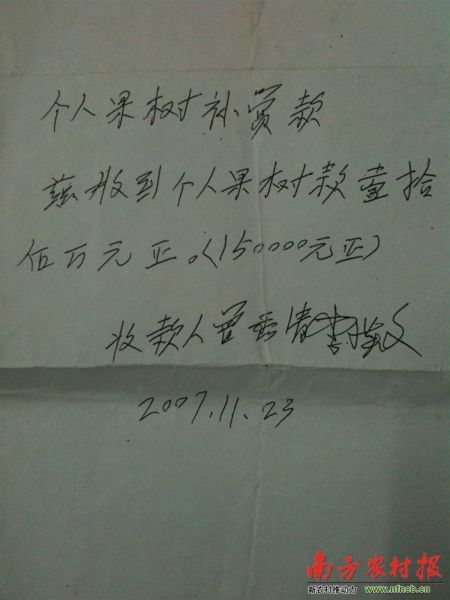 个人果树补赏款
兹收到个人果树款壹拾
伍万元正。(150000元正)
收款人曾
2007.11.23
南方农村报
新农村推动力 www.nfncb.cn